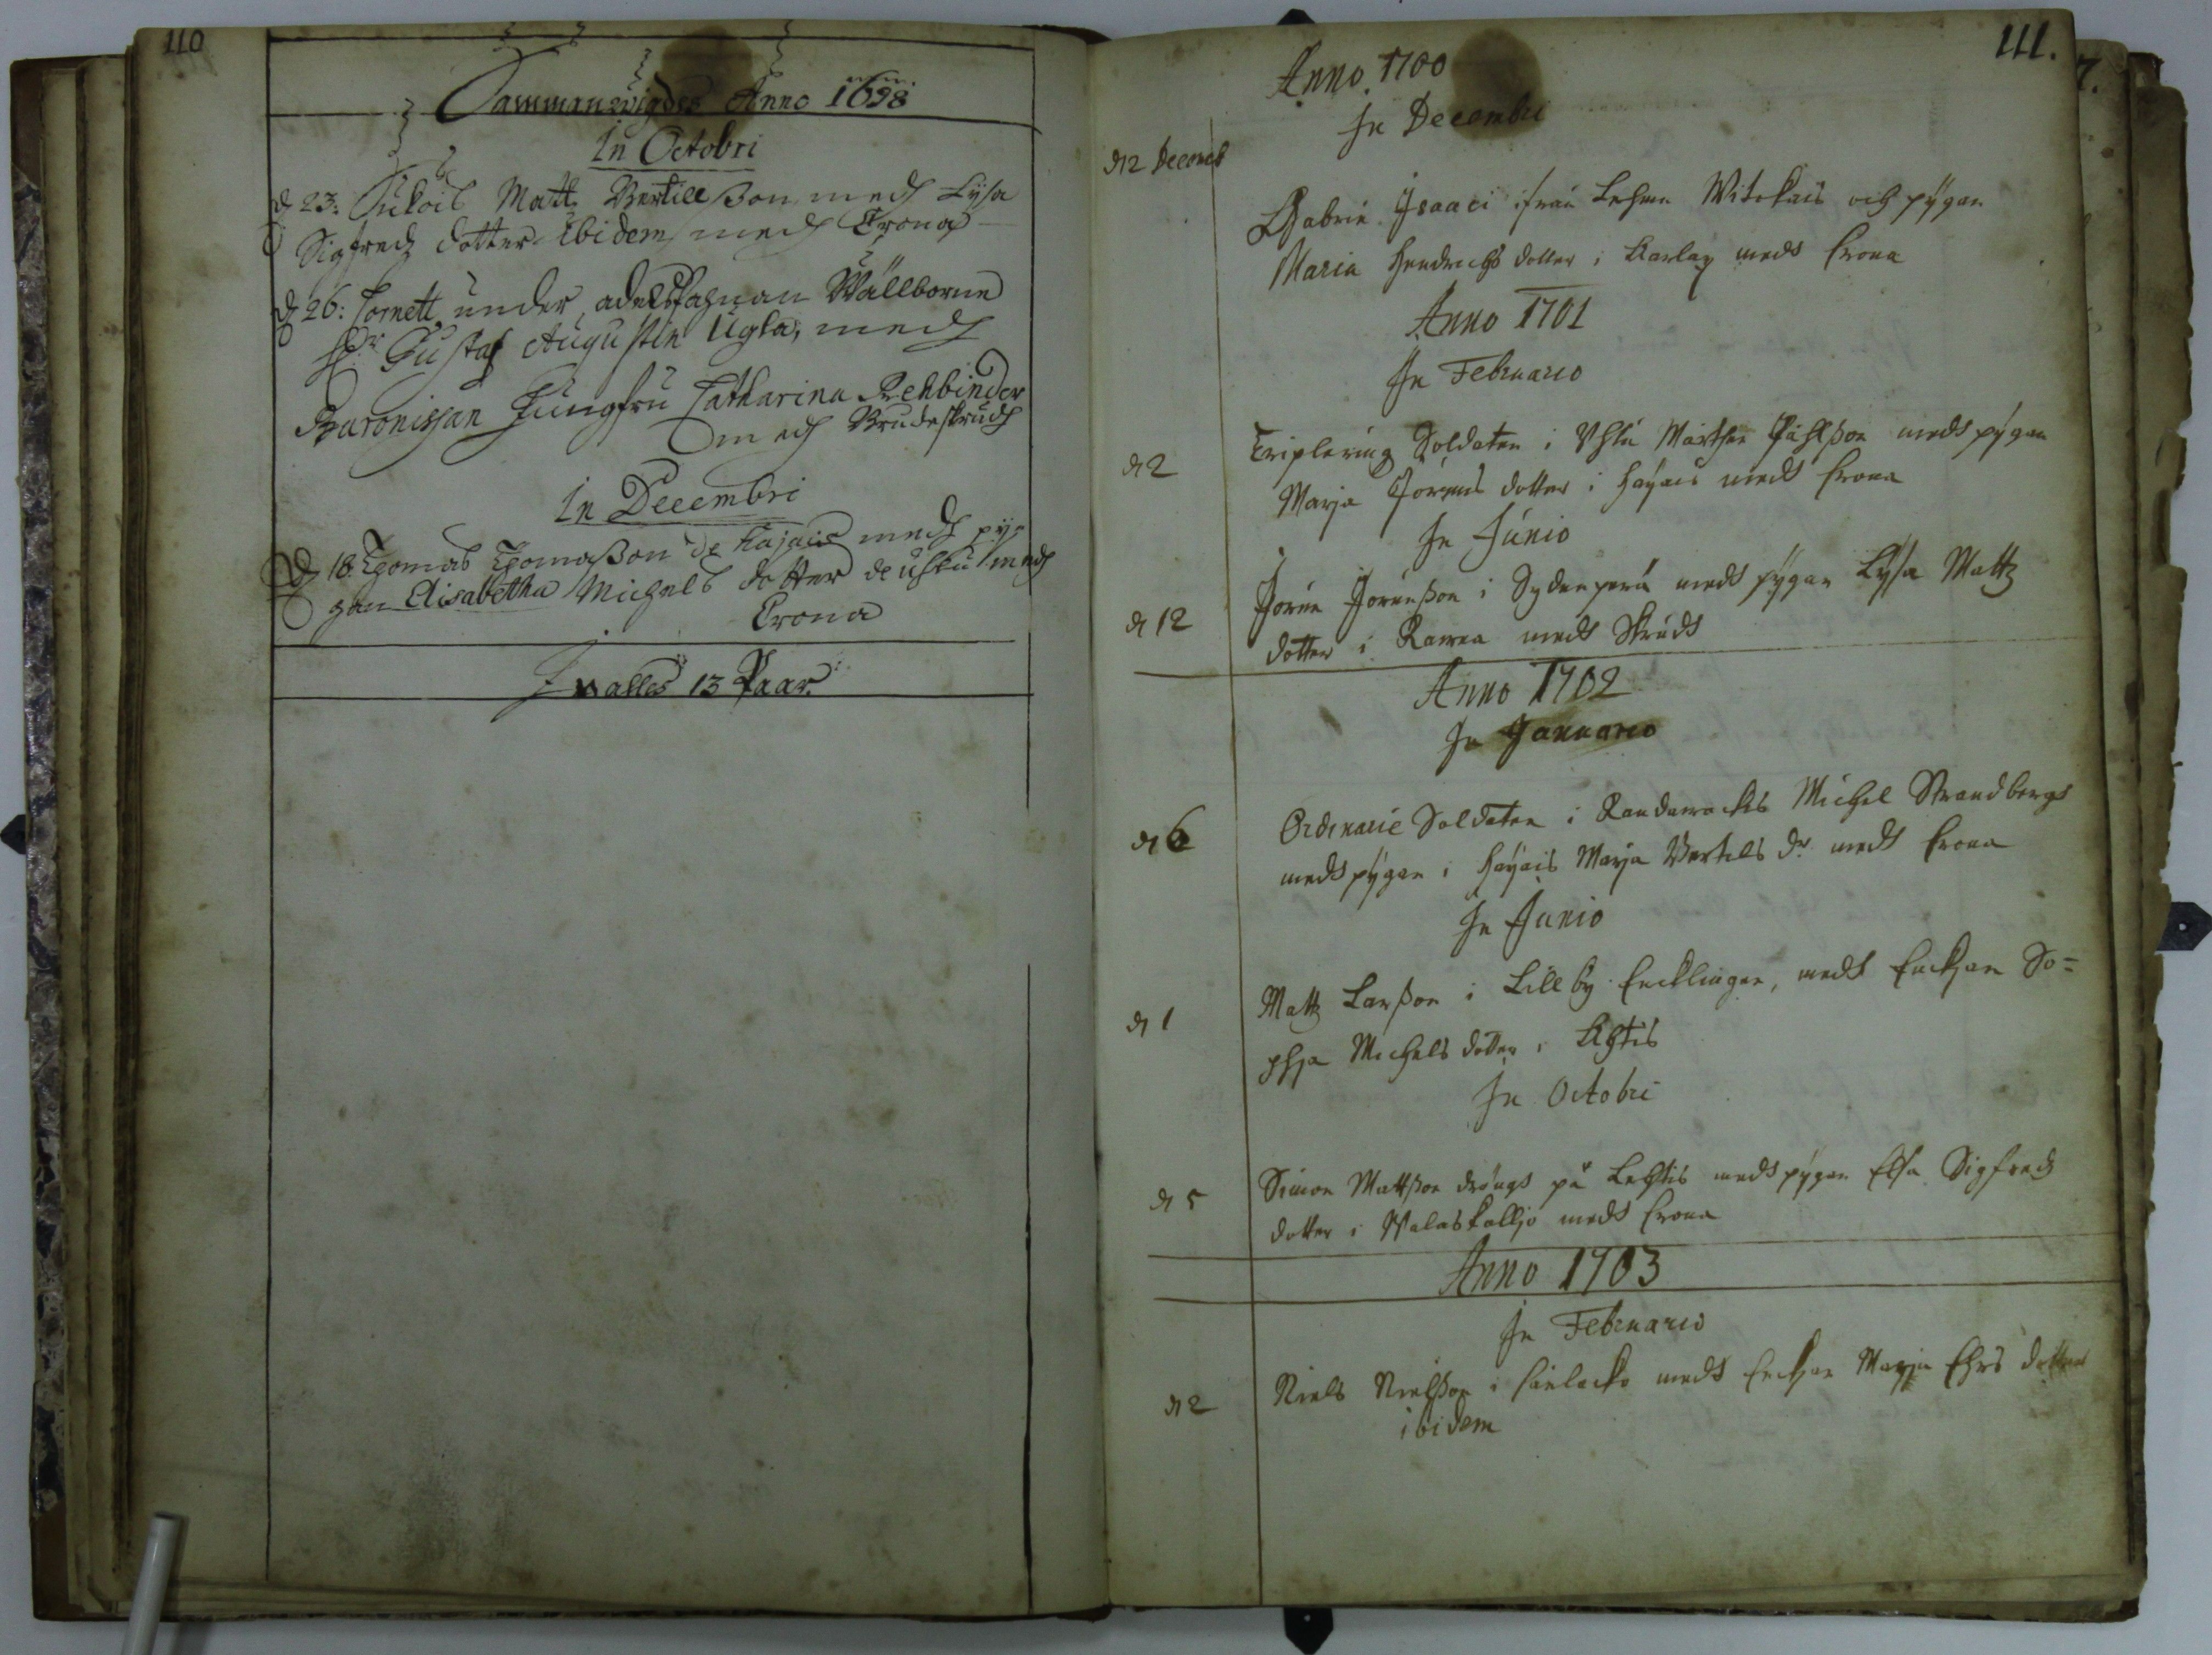 110
Sammanwigdes Anno 1698
In Octobri
d 23: Matt Bertillsson medh Lysa
Sigfredz dotter Ibidem medh Crona
d 26: Cornett under adelsfahnan Wällborne
Hr Gustaf Augustin Ugla, medh
Baronissan Jungfru Catharina Rehbinder
medh Brudeskrudh
In Decembri
d 18. Thomas Thomasson de Hajais medh py-
gan Elisabetha Michels dotter de medh
Crona
In alles 13 Paar.
111.
7.
Anno 1700
In Decembri
d 12 Decemb
Isaaci ifrån Witikais och pygan
Maria Hendrichs dotter i medh Crona
Anno 1701
In Februario
d 2
Soldaten i Påhlsson medh pygan
Marja Jörens dotter i Hayais medh Crona
In Junio
d 12
Jören Jörensson i medh pygan Lysa Mattz
dotter i medh Skrudh
Anno 1702
In Januario
d 6
Ordinarie Soldaten i Michel Strandbergh
medh pygan i Hayais Marja Bertels dr medh Crona
In Junio
d 1
Mattz Larsson i Lillby Encklingen, medh Enckjan So=
phja Michels dotter i Ahtis
In Octobri
d 5
Simon Mattsson drängh på Lehtis medh pygan Elsa Sigfredz
dotter i Walaskallio medh Crona
Anno 1703
In Februario
d 2
Niels Nielsson i medh Enckjan Marja dotter
ibidem